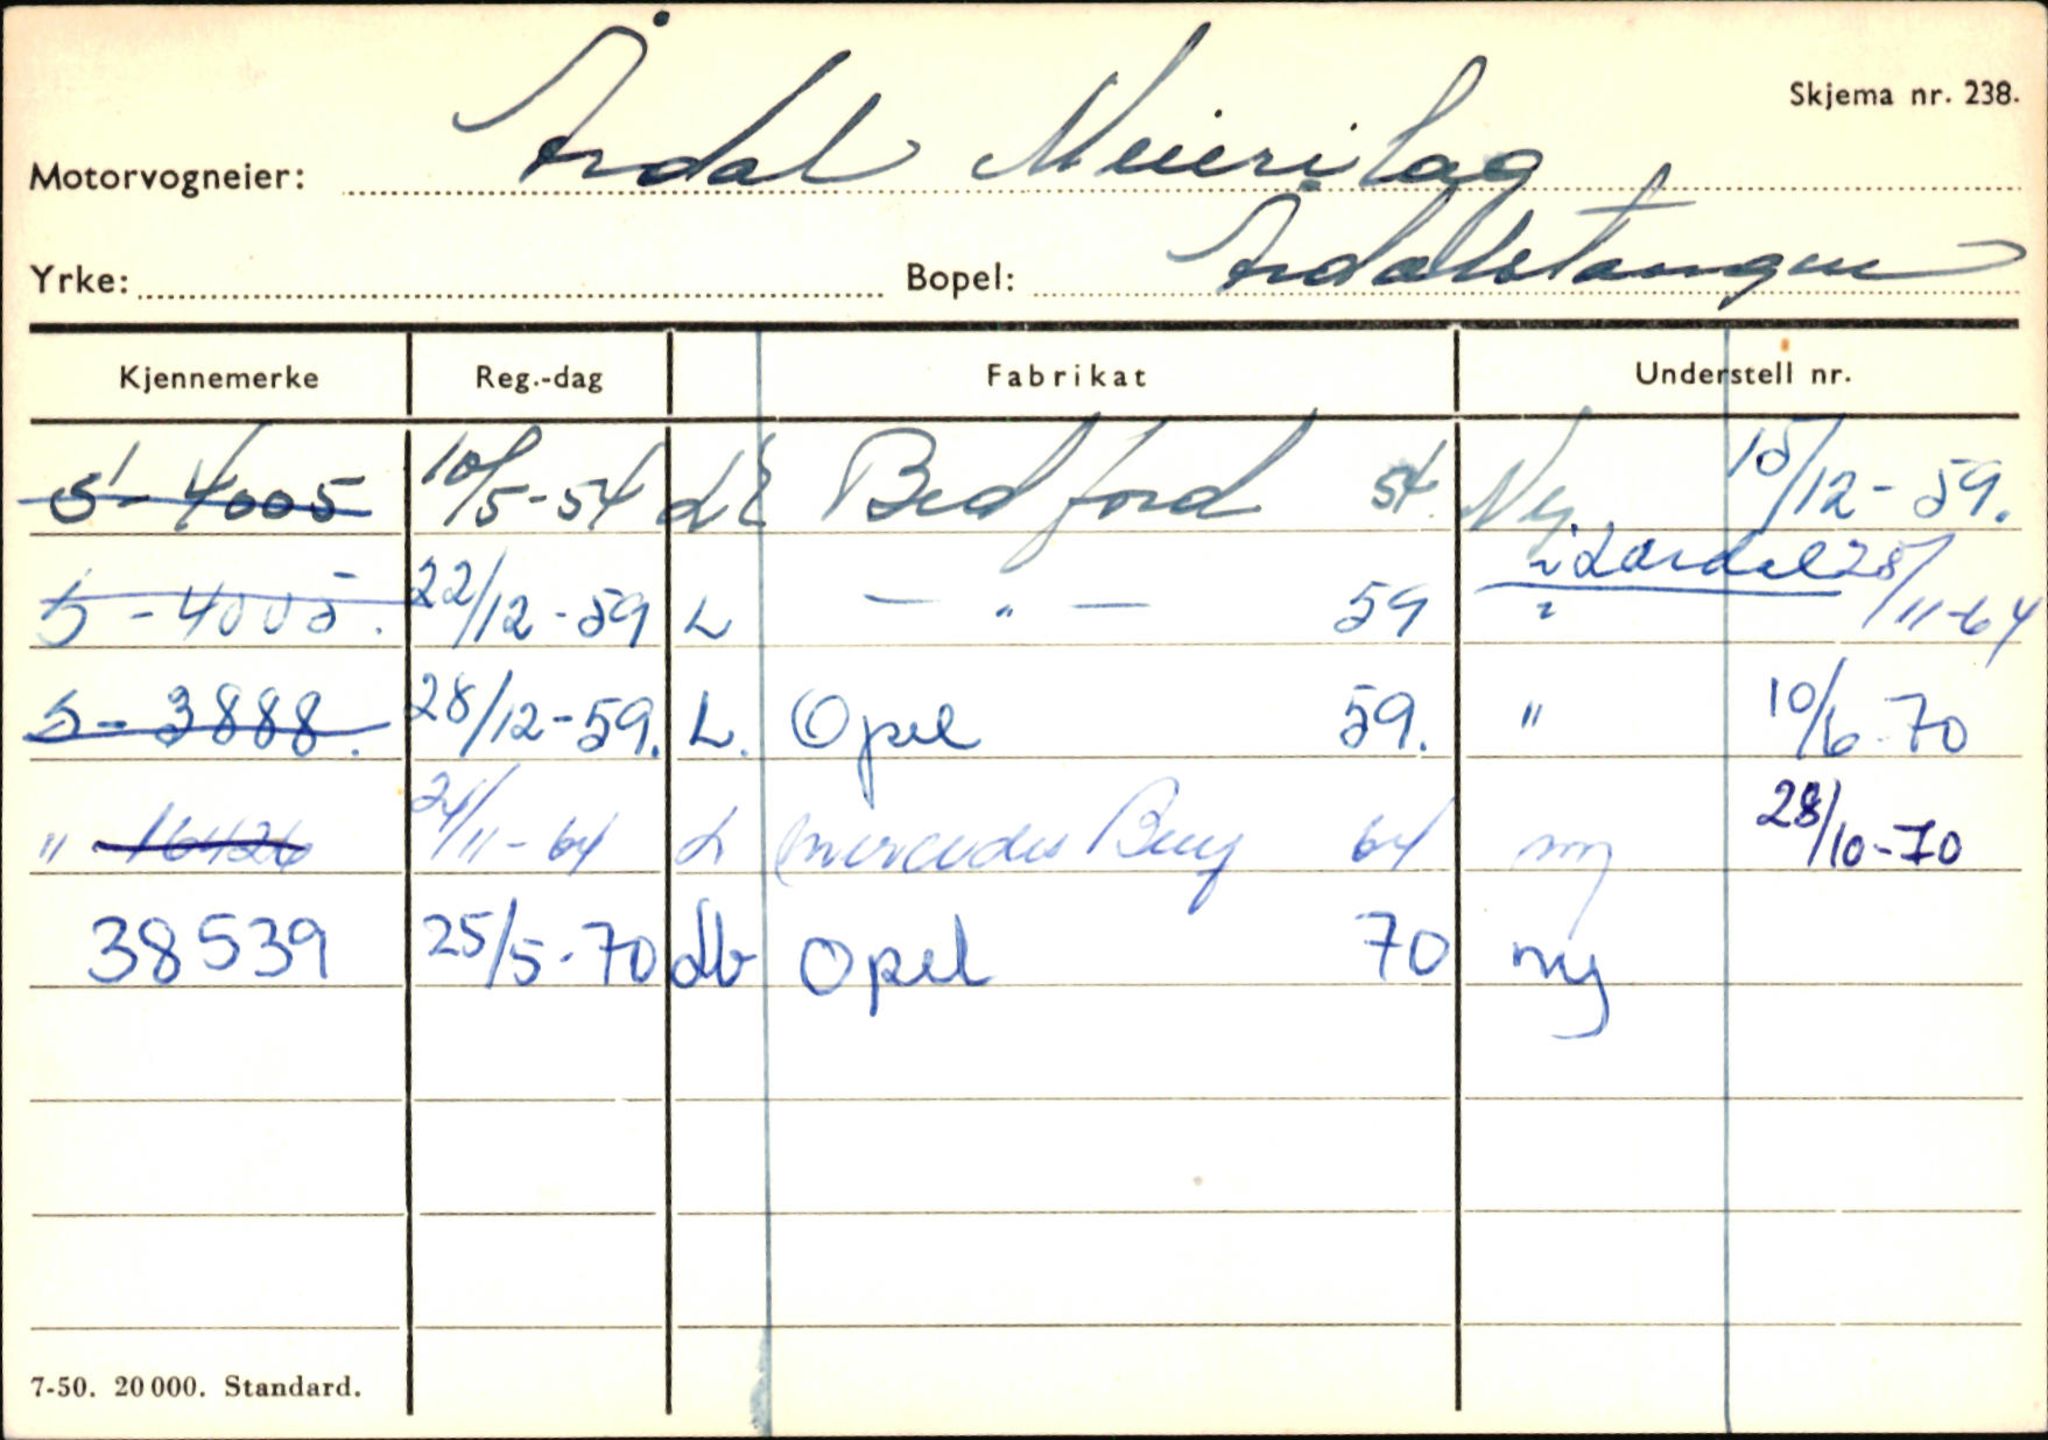 Skjema nr. 238.
Motorvogneier: Årdal Meierilag
Yrke: Bopel: Årdalstangen
Kjennemerke Reg.-dag Fabrikat Understell nr.
S-4005 10/5-54 Bedford 54 Ny 15/12-59.
i Lærdal 25/11-64
S-4005. 22/12-59 L — " — 59 "
S-3888. 28/12-59. L. Opel 59. " 10/6-70
" 16426 24/11-64 L Mercedes Benz 64 ny 28/10-70
38539 25/5-70 Lb Opel 70 ny
7-50. 20 000. Standard.